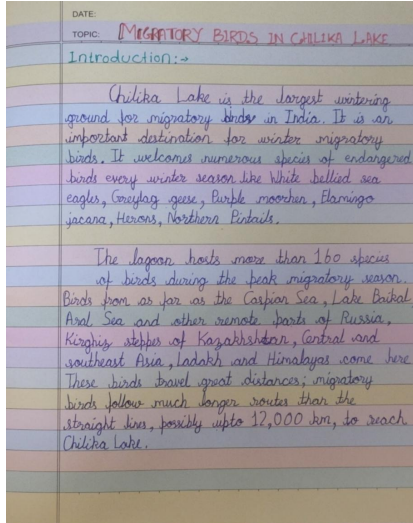 DATE:
TOPIC: MIGRATORY BIRDS IN CHILIKA LAKE
Introduction:→
Chilika Lake is the largest wintering
ground for migratory birds in India. It is an
important destination for winter migratory
birds. It welcomes numerous species of endangered
birds every winter season like White bellied sea
eagles, Greylag geese, Purple moorhen, Flamingo
jacana, Herons, Northern Pintails.
The lagoon hosts more than 160 species
of birds during the peak migratory season.
Birds from as far as the Caspian Sea, Lake Baikal
Aral Sea and other remote parts of Russia,
Kirghiz steppes of Kazakhshtan, Central and
southeast Asia, Ladakh and Himalayas come here
These birds travel great distances; migratory
birds follow much longer routes than the
straight lines, possibly upto 12,000 km, to reach
Chilika Lake.